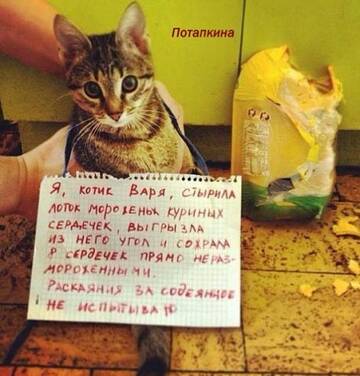 Потапкина
Я, котик Варя, стырила
лоток мороженых куриных
сердечек, выгрызла
из него угол и сожрала
8 сердечек прямо нераз-
мороженными.
Раскаяния за содеянное
не испытываю